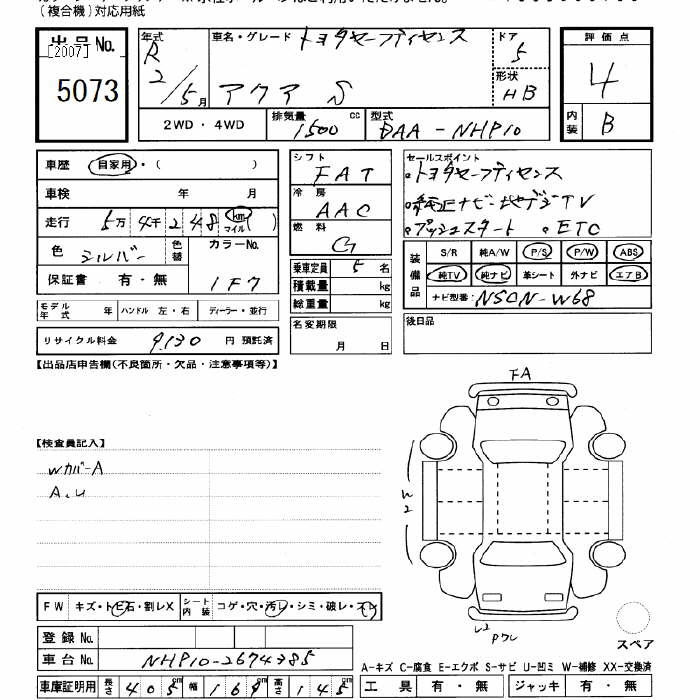 (複合機)対応用紙
出品No. 年式 R 車名・グレード トヨタセーフティセンス ドア 5 評価点
[2007] 2/5月 アクア S 形状 HB 4
5073 2WD・4WD 排気量 1500 cc 型式 DAA-NHP10 内装 B
車歴 自家用・( ) シフト FAT セールスポイント
車検 年 月 冷房 AAC ・トヨタセーフティセンス
走行 5万4千248 km マイル ( ) 燃料 G ・純正ナビ・地デジTV
色 シルバー 色替 カラーNo. ・プッシュスタート ・ETC
保証書 有・無 1F7 乗車定員 5名
装備品 S/R 純A/W P/S P/W ABS
積載量 kg 純TV 純ナビ 革シート 外ナビ エアB
モデル年式 年 ハンドル 左・右 ディーラー・並行 総重量 kg ナビ型番 NSCN-W68
リサイクル料金 9,130 円 預託済 名変期限 月 日 後日品
【出品店申告欄(不良箇所・欠品・注意事項等)】
FA
【検査員記入】
Wカバ-A
A、U
W2
FW キズ・トビ石・割レX シート内装 コゲ・穴・汚レ・シミ・破レ・スレ
U2
登録No.
スペア
車台No. NHP10-2674385
A-キズ C-腐食 E-エクボ S-サビ U-凹ミ W-補修 XX-交換済
車庫証明用 長さ 405cm 幅 169cm 高さ 145cm 工具 有・無 ジャッキ 有・無